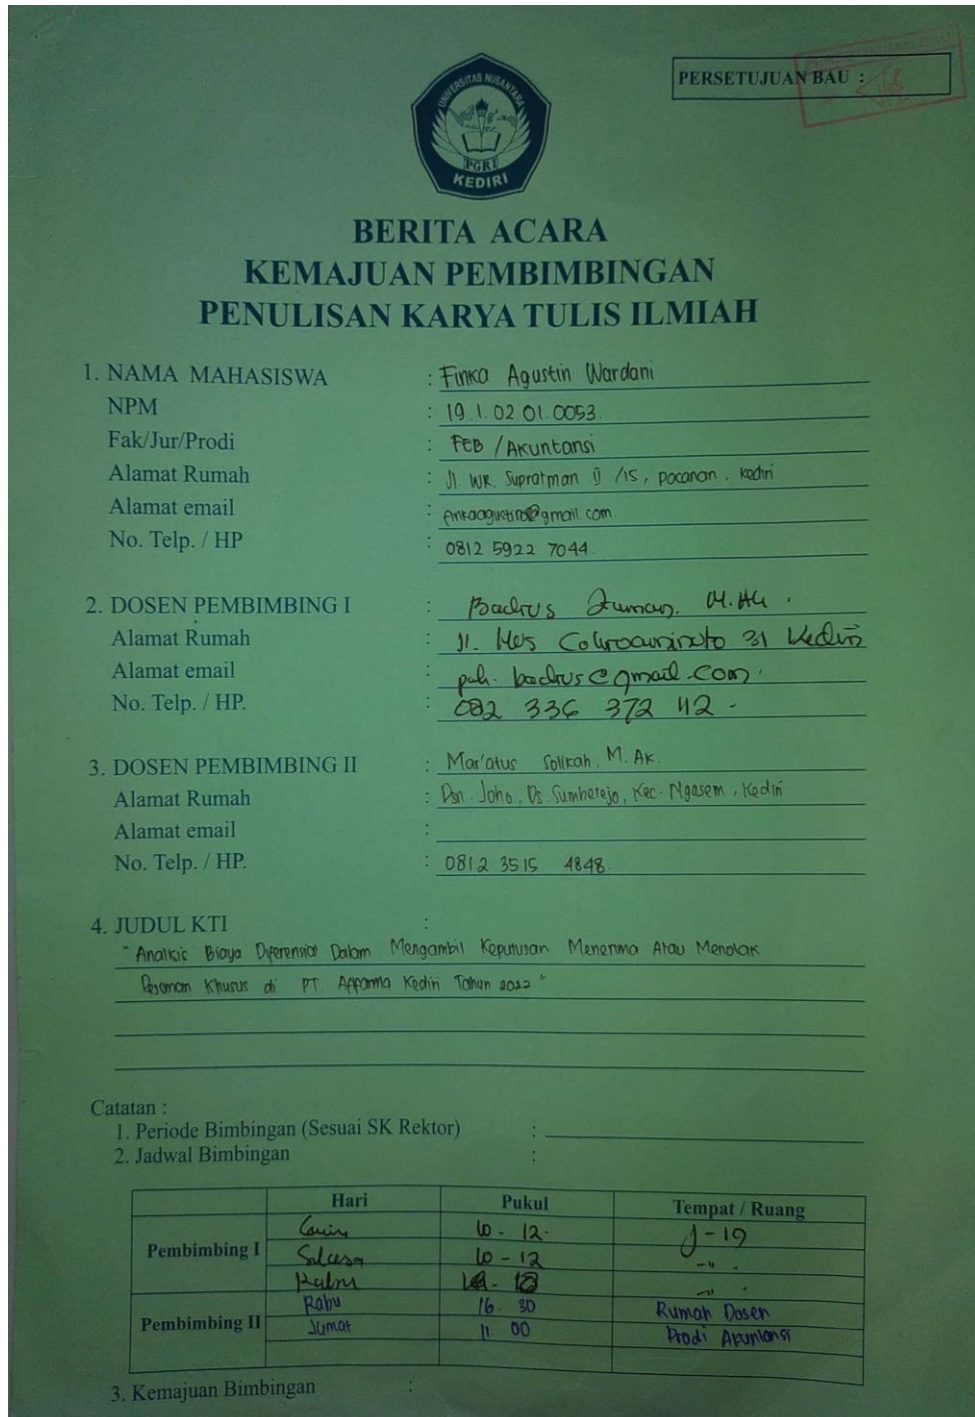 PERSETUJUAN BAU :
UNIVERSITAS NUSANTARA
PGRI
KEDIRI
BERITA ACARA
KEMAJUAN PEMBIMBINGAN
PENULISAN KARYA TULIS ILMIAH
1. NAMA MAHASISWA : Finka Agustin Wardani
NPM : 19.1.02.01.0053.
Fak/Jur/Prodi : FEB / Akuntansi
Alamat Rumah : Jl. WR. Supratman /15, pocanan, kediri
Alamat email : @gmail.com.
No. Telp. / HP : 0812 5922 7044.
2. DOSEN PEMBIMBING I : Badrus Zaman, M.Ak.
Alamat Rumah : Jl. 31 Kediri
Alamat email : pak.badrus@gmail.com.
No. Telp. / HP. : 082 336 372 42 -
3. DOSEN PEMBIMBING II : Mar'atus Solikah, M. Ak.
Alamat Rumah : Dsn. Joho, Ds. Sumberejo, Kec. Ngasem, Kediri
Alamat email :
No. Telp. / HP. : 0812 3515 4848.
4. JUDUL KTI :
" Analisis Biaya Diferensial Dalam Mengambil Keputusan Menerima Atau Menolak
Pesanan Khusus di PT. Kediri Tahun 2022 "
Catatan :
1. Periode Bimbingan (Sesuai SK Rektor) :
2. Jadwal Bimbingan :
Hari Pukul Tempat / Ruang
Senin 10 - 12. J-19
Pembimbing I Selasa 10 - 12 -"-.
Rabu -"-.
Rabu 16. 30 Rumah Dosen
Pembimbing II Jumat 11. 00 Prodi Akuntansi
3. Kemajuan Bimbingan :